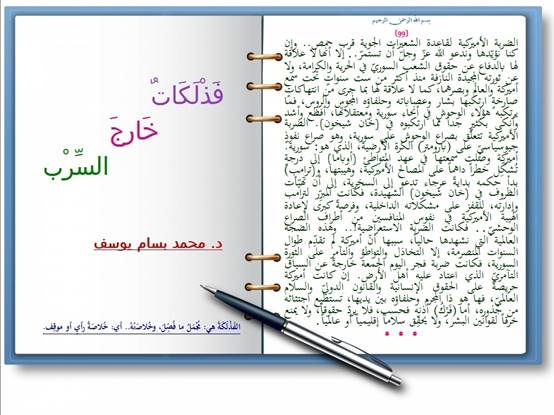 بسم الله الرحمن الرحيم
(99)
الضربة الأميركية لقاعدة الشعيرات الجوية قرب حمص.. وإن
كنا نؤيّدها وندعو الله عزّ وجلّ أن تستمرّ.. إلا أنها لا علاقة
لها بالدفاع عن حقوق الشعب السوريّ في الحرية والكرامة، ولا
عن ثورته المجيدة النازفة منذ أكثر من ست سنوات تحت سمع
أميركة والعالم وبصرهما، كما لا علاقة لها بما جرى من انتهاكات
صارخة ارتكبها بشار وعصاباته وحلفاؤه المجوس والروس، فما
يرتكبه هؤلاء الوحوش في أنحاء سورية ومعتقلاتها، أفظع وأشد
وأنكى بكثير جداً مما ارتكبوه في (خان شيخون). الضربة
الأميركية تتعلق بصراع الوحوش على سورية، وهو صراع نفوذ
جيوسياسيّ على (بارومتر) الكرة الأرضية، الذي هو: سورية.
أميركة وصلت سمعتها في عهد المتواطئ (أوباما) إلى درجة
تشكّل خطراً داهماً على المصالح الأميركية، وهيبتها، و(ترامب)
بدأ حكمه بداية عرجاء تدعو إلى السخرية، إلى أن تهيّأت
الظروف في (خان شيخون) الشهيدة، فكانت المبرّر لترامب
وإدارته، للقفز على مشكلاته الداخلية، وفرصة كبرى لإعادة
الهيبة الأميركية في نفوس المنافسين من أطراف الصراع
الوحشيّ.. فكانت الضربة الاستعراضية!.. وهذه الضجة
العالمية التي نشهدها حالياً، سببها أن أميركة لم تقدّم طوال
السنوات المنصرمة، إلا التخاذل والتواطؤ والتآمر على الثورة
السورية، فكانت ضربة فجر اليوم الجمعة خارجة عن السياق
التآمريّ الذي اعتاد عليه أهل الأرض. إن كانت أميركة
حريصة على الحقوق الإنسانية والقانون الدوليّ والسلام
العالميّ، فها هو ذا المجرم وحلفاؤه بين يديها، تستطيع اجتثاثه
من جذوره، أما (فَرْكُ) أذنه فحسب، فلا يردّ حقوقاً، ولا يمنع
خرقاً لقوانين البشر، ولا يحقق سلاماً إقليمياً أو عالمياً.
فَذْلَكَاتٌ
خَارِجَ
السِّرْبِ
د. محمد بسام يوسف
الفَذْلَكَةُ هي: مُجْمَلُ ما فُصِّلَ، وخُلاصَتُهُ.. أي: خُلاصَةُ رأيٍ أو موقِفٍ.